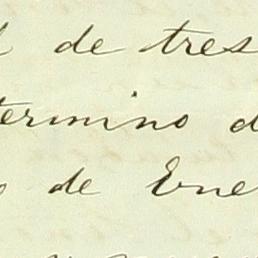 de tres
termino d
de Ene